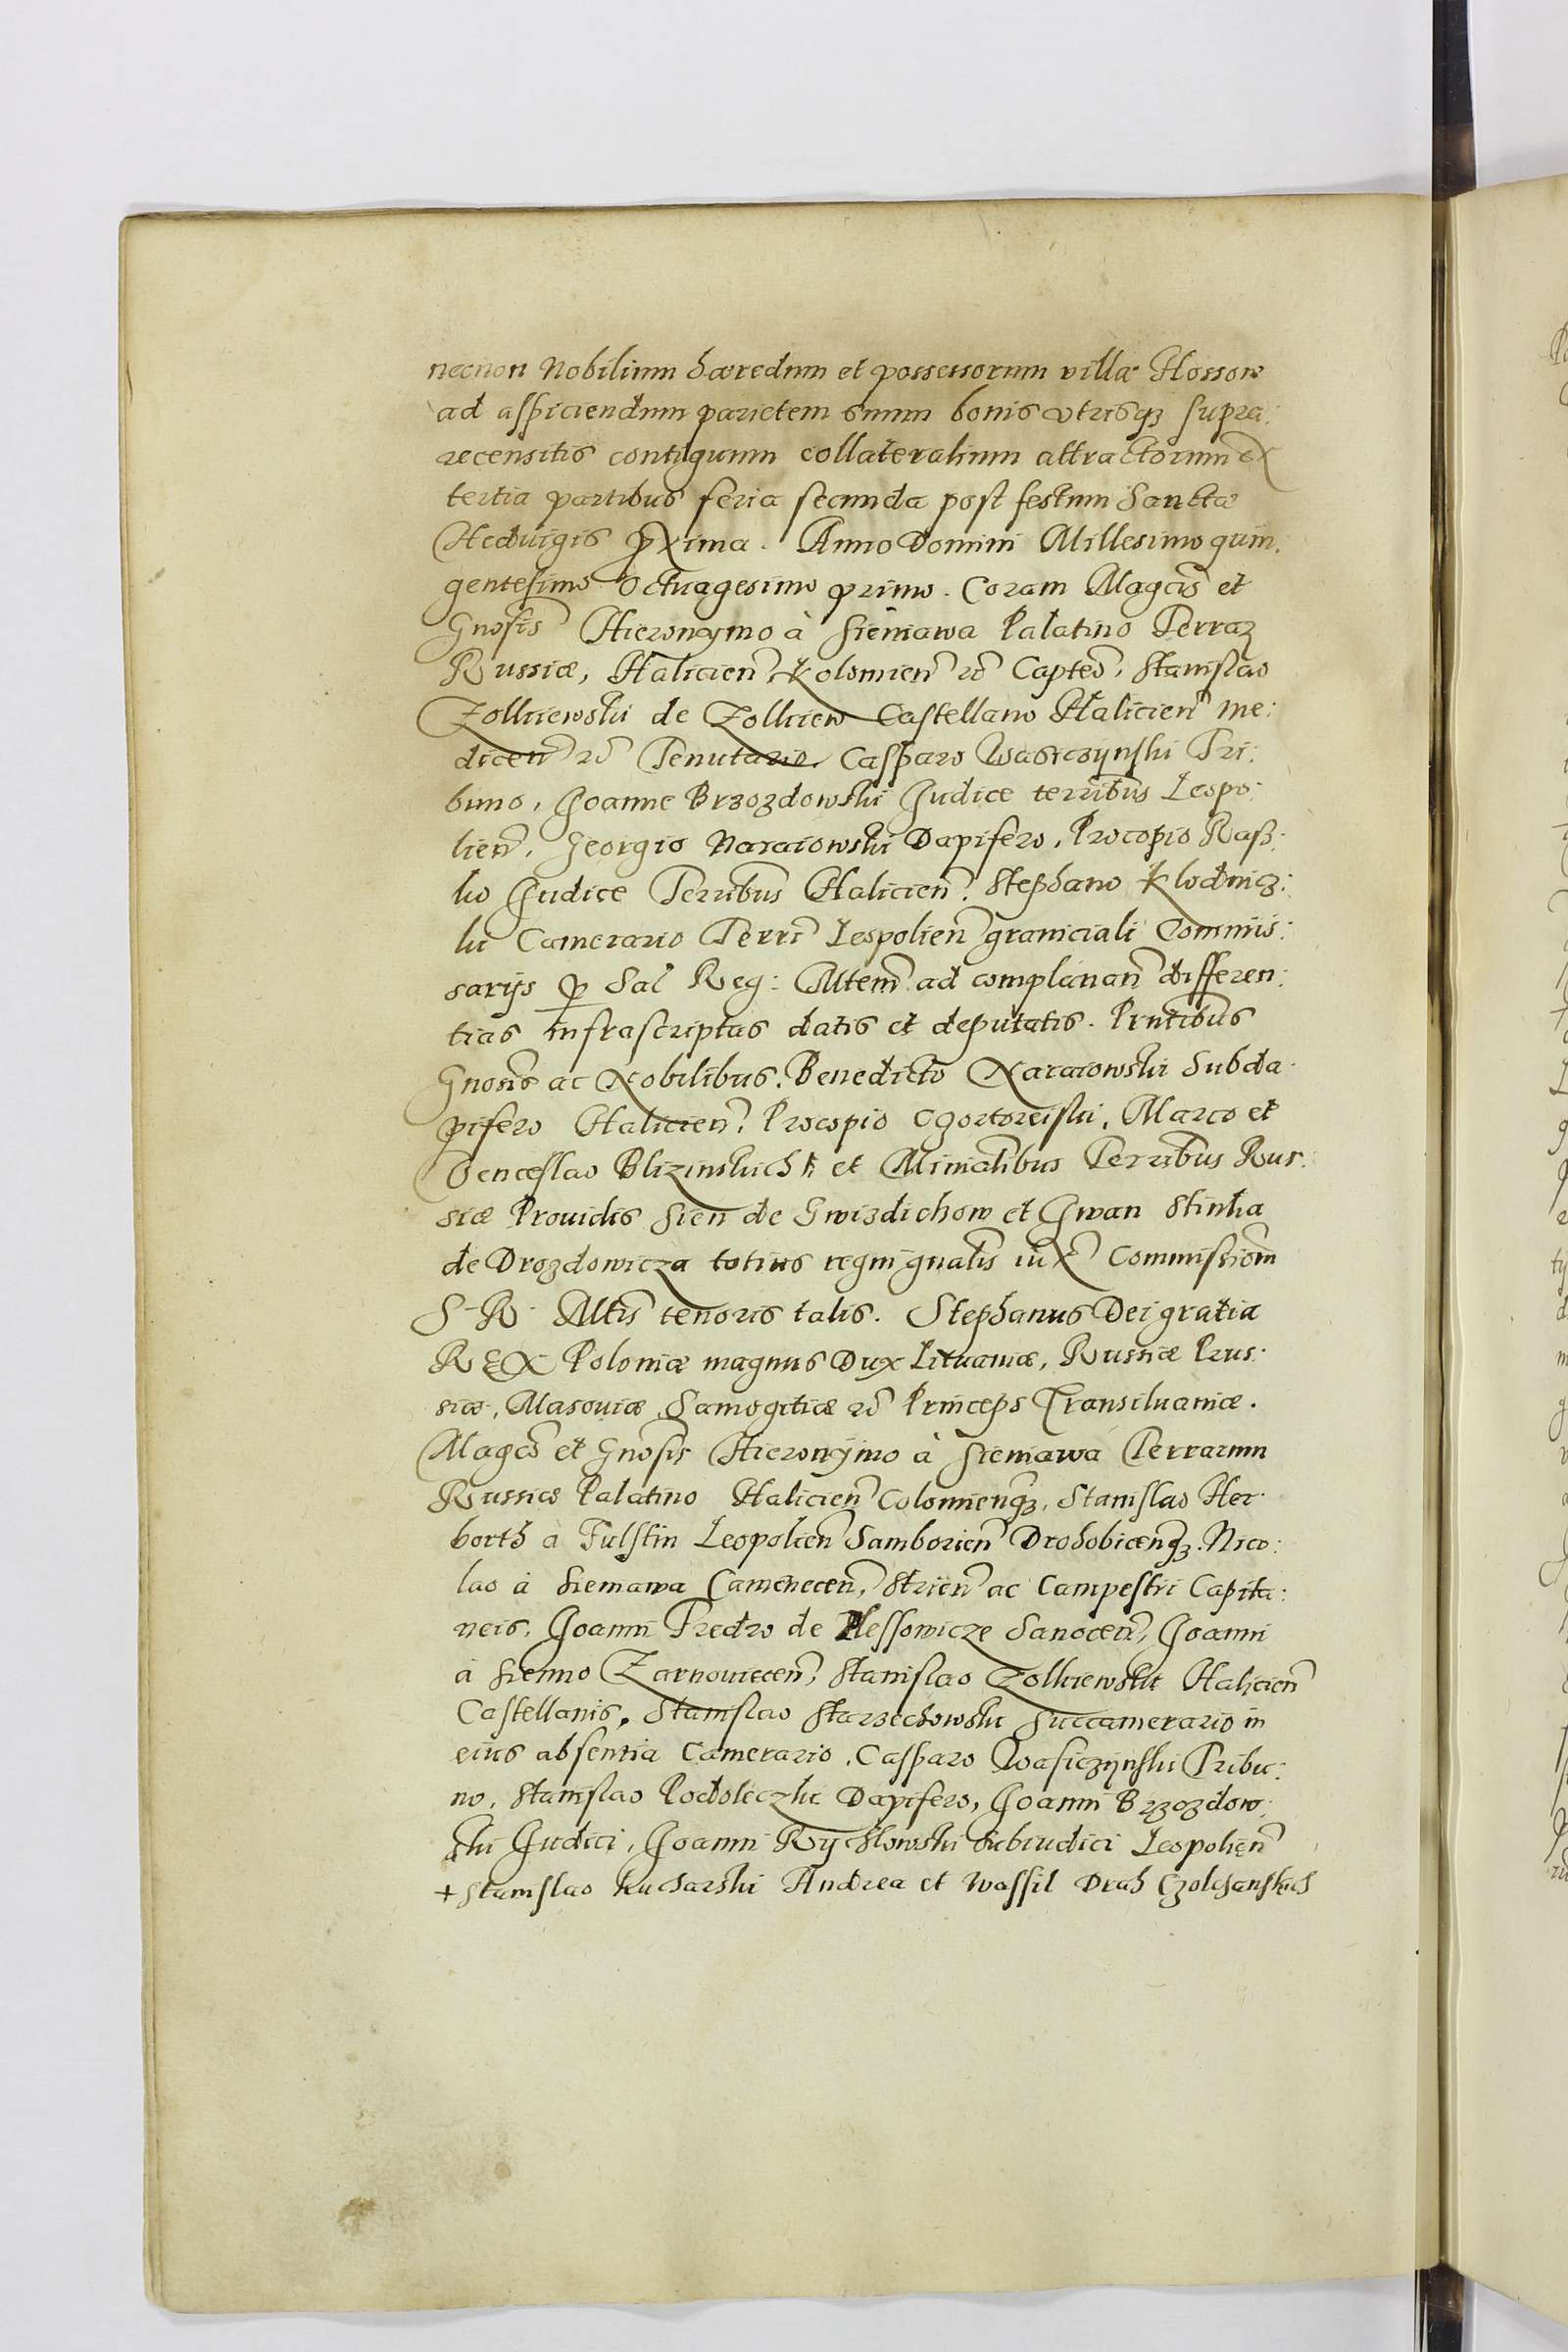 necnon Nobilium hæredum et possessorum villæ Hossow
ad aspiciendum parietem suum bonis vtrisqꝫ supra:
recensitis contiguum collateralium attractorum ex
tertia partibus feria secunda post festum Sanctæ
Heduigis ꝓxima. Anno Domini Millesimo quin:
gentesimo Octuagesimo primo. Coram Magcis et
Gnosis Hieronymo à Sieniawa Palatino Terraꝝ
Russiæ, Halicien̄ Kolomien̄ ꝛc Capteo, Stanislao
Zolkiewski de Zolkiew Castellano Halicien̄ me:
dicen̄ ꝛc Tenutario. Casparo Wasiczynski Tri:
buno, Joanne Brzozdowski Judice terribus Leopo:
lien̄, Georgio Naraiowski Dapifero, Procopio Kasz:
ko Judice Terribus Halicien̄. Stephano Klodnicz:
ki Camerario Terri Leopolien̄ graniciali Commis:
sarijs ꝑ Sac Reg: Mtem ad complanan̄ differen:
tias infrascriptas datis et deputatis. Pntibus
Gnosis ac Nobilibus. Benedicto Naraiowski Subda:
pifero Halicien̄. Procopio Czortoreiski, Marco et
Venceslao Blizinskich et Minialibus Terribus Rus:
siæ Prouidis Sien de Gwizdichow et Iwan Stinka
de Drozdowicza totius regni gnalis iux Commissiom
S. R. Mtis tenoris talis. Stephanus Dei gratia
REX Poloniæ magnus Dux Lituaniæ, Russiæ Prus:
siæ, Masouiæ, Samogitiæ ꝛc Princeps Transiluaniæ.
Magco et Gnosis Hieronymo à Sieniawa Terrarum
Russiæ Palatino Halicien̄ Colomienqꝫ, Stanislao Her:
borth à Fulstin Leopolien̄ Samborien̄ Drohobicenqꝫ. Nico:
lao à Sieniawa Camenecen̄, Strien̄ ac Campestri Capita:
neis, Joanni Fredro de Plessowicze Sanocen̄, Joanni
à Sienno Zarnouiecen̄, Stanislao Zolkiewski Halicien̄
Castellanis, Stanislao Starzechowski Succamerario in
eius absentia Camerario, Casparo Wasiczynski Tribu:
no, Stanislao Podoleczki Dapifero, Joanni Brzozdow:
ski Judici, Joanni Rychlowski Subiudici Leopolien̄
+ Stanislao Kucharski Andrea et Wassil Drah Czolchanskich